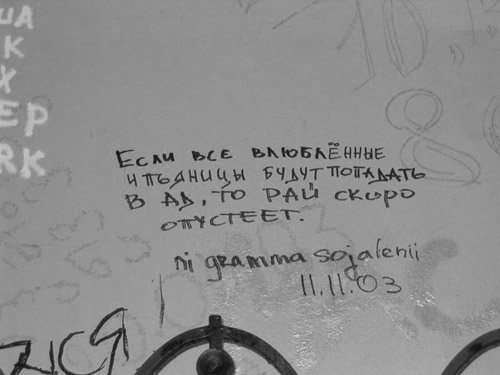 UA
K
X
EP
RK
ЕСЛИ ВСЕ ВЛЮБЛЁННЫЕ
И ПЬЯНИЦЫ БУДУТ ПОПАДАТЬ
В АД, ТО РАЙ СКОРО
ОПУСТЕЕТ.
ni gramma sojalenii
11.11.03